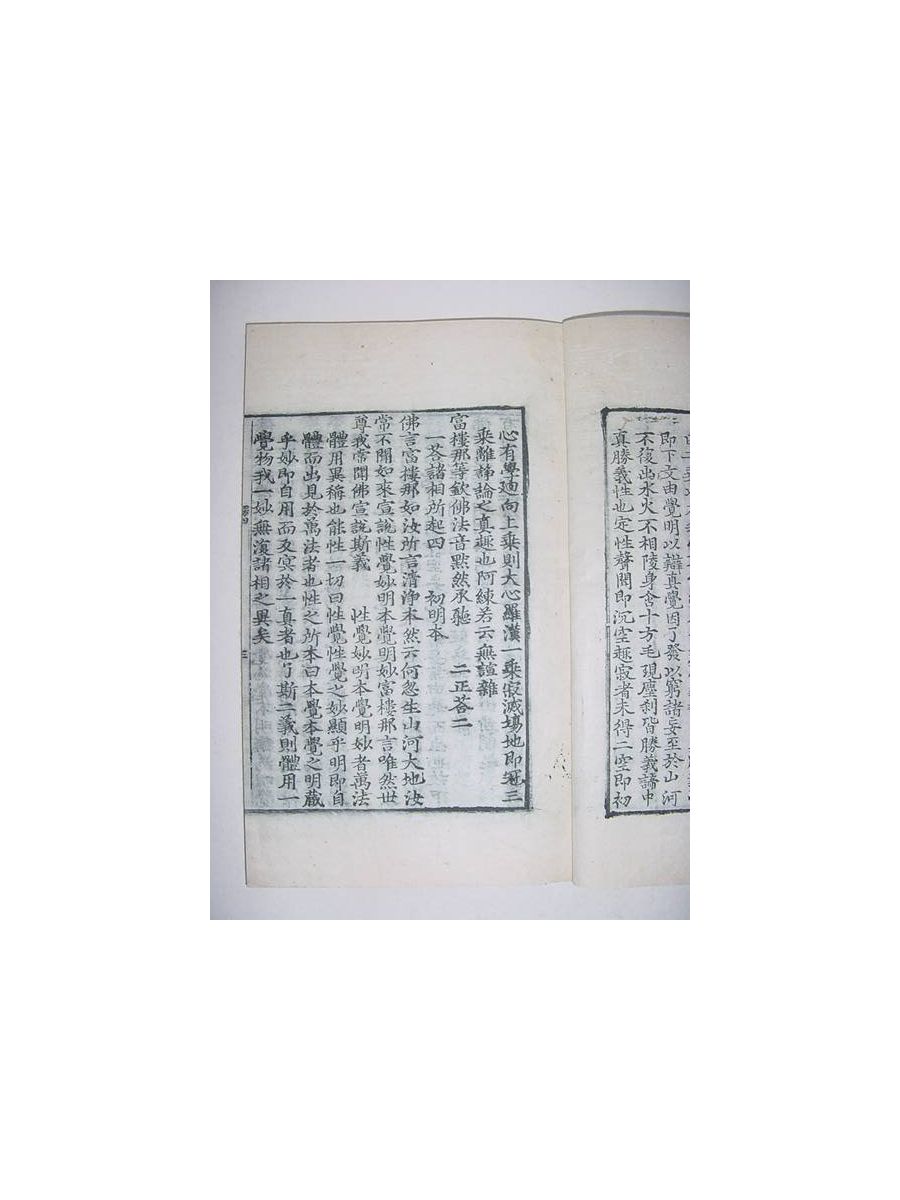 即下文由覺明以辯真覺因了發以窮諸妄至於山河
不復出水火不相陵身含十方毛現塵刹皆勝義諦中
真勝義性也定性聲聞即沉空趣寂者未得二空即初
心有學廻向上乘則大心羅漢一乘寂滅場地即三
乘離諍論之真趣也阿練若云無諠雜
富樓那等欽佛法音默然承聽　二正荅二
一荅諸相所起四　初明本
佛言富樓那如汝所言清淨本然云何忽生山河大地汝
常不聞如來宣說性覺妙明本覺明妙富樓那言唯然世
尊我常聞佛宣說斯義　性覺妙明本覺明妙者萬法
體用異稱也能性一切曰性覺性覺之妙顯乎明即自
體而出見於萬法者也性之所本曰本覺本覺之明藏
乎妙即自用而反冥於一真者也了斯二義則體用一
覺物我一妙無復諸相之異矣